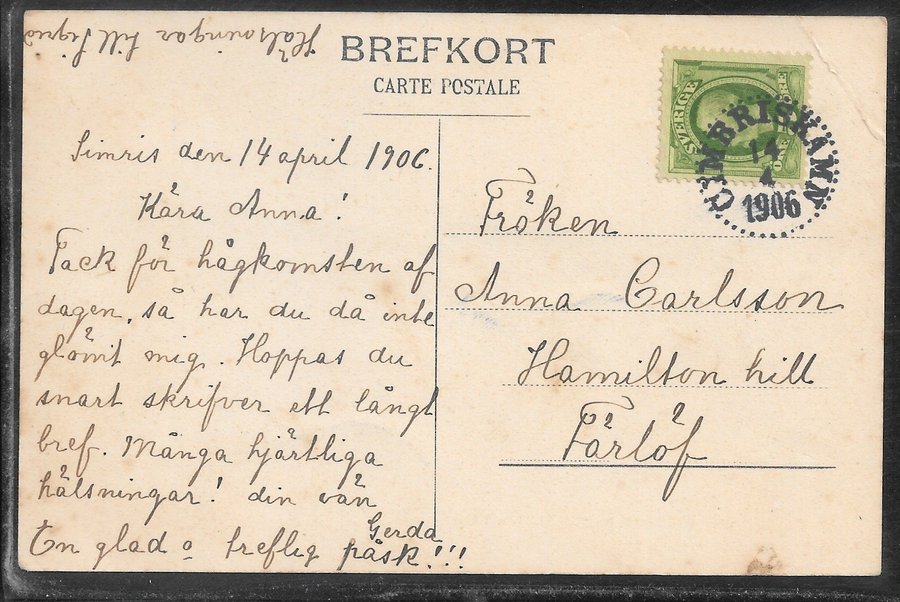 Hälsningar till Signe
BREFKORT
CARTE POSTALE
Simris den 14 april 1906.
Kära Anna!
Tack för hågkomsten af
dagen, så har du då inte
glömt mig. Hoppas du
snart skrifver ett långt
bref. Många hjärtliga
hälsningar! din vän
Gerda
En glad o treflig påsk!!!
SVERIGE
CIMBRISHAMN
14
4
1906
Fröken
Anna Carlsson
Hamilton hill
Färlöf